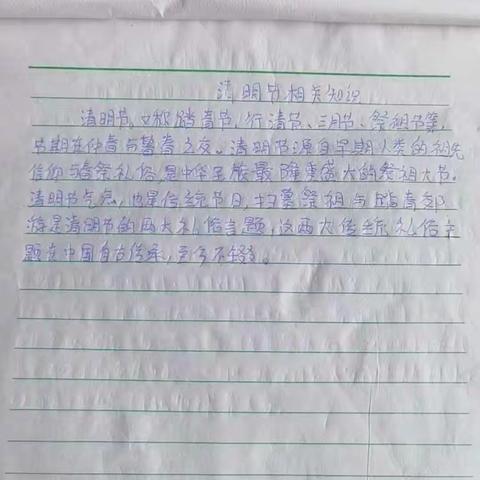 清明节相关知识
清明节,又称踏青节、行清节、三月节、祭祖节等,
节期在仲春与暮春之交。清明节源自早期人类的祖先
信仰与春祭礼俗,是中华民族最隆重盛大的祭祖大节。
清明节气息,也是传统节日,扫墓祭祖与踏青郊
游是清明节的两大礼俗主题,这两大传统礼俗主
题在中国自古传承,至今不辍。